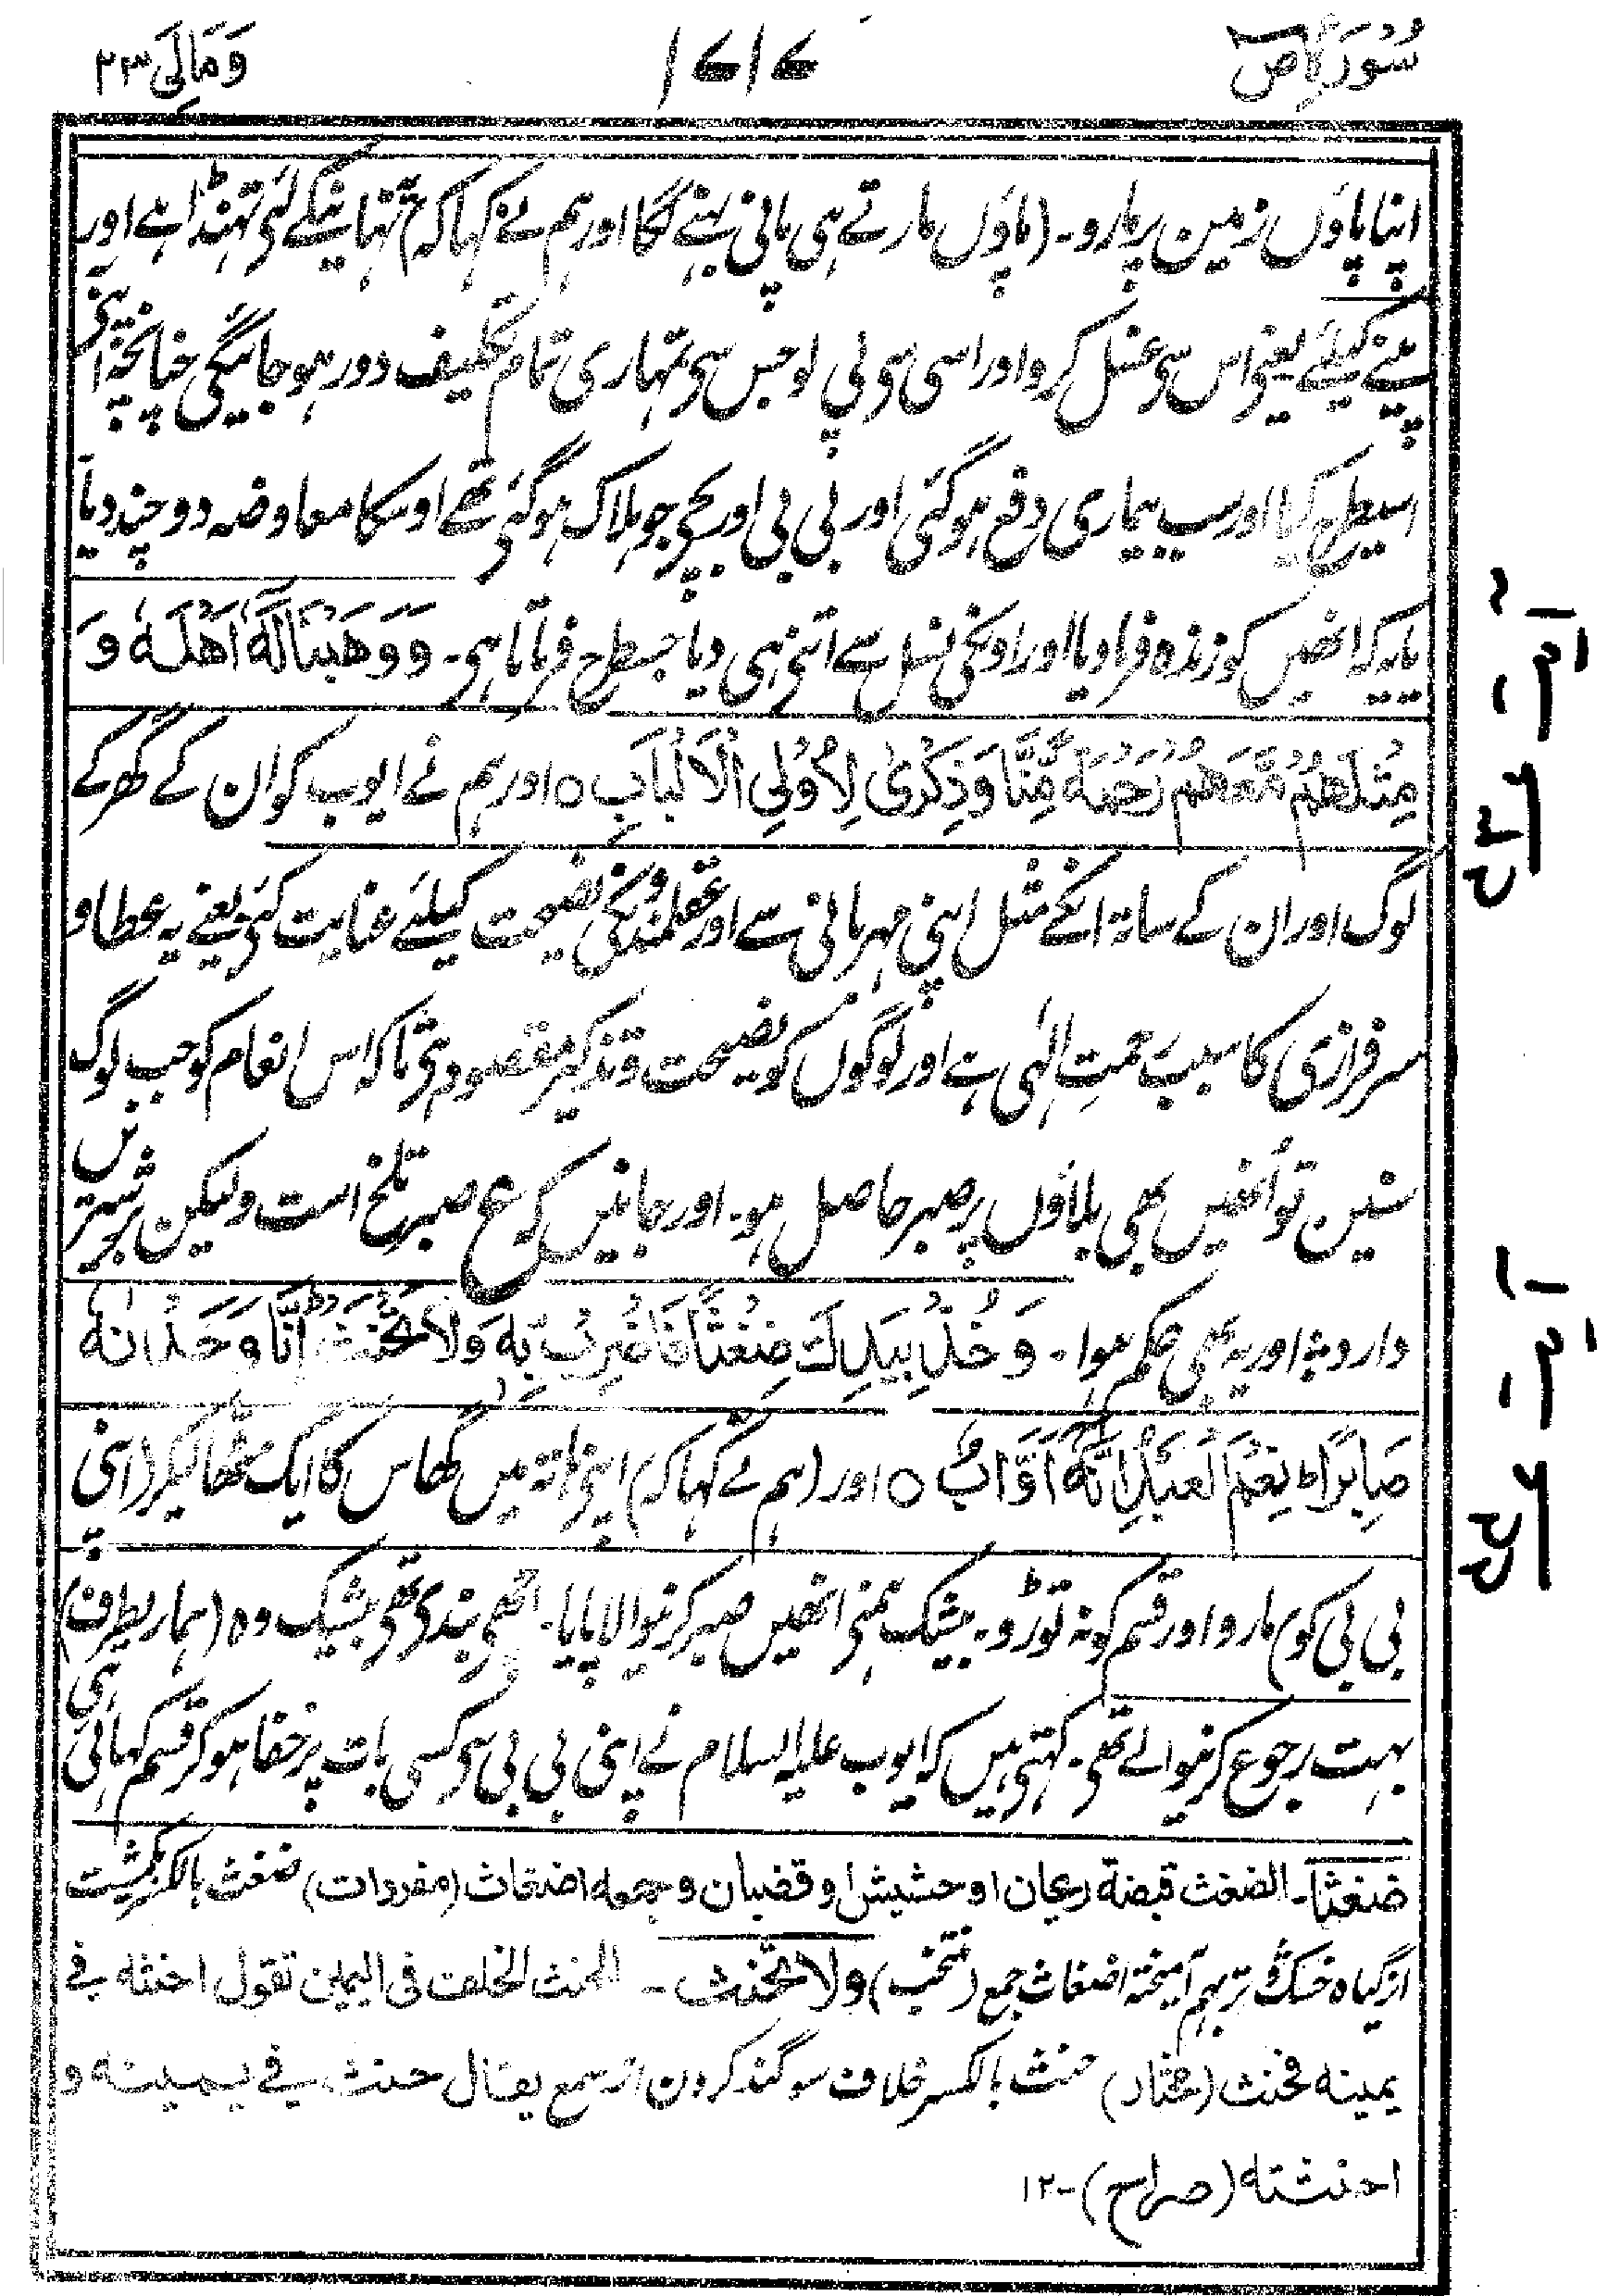 سُوْرَۃُ صٓ
۱۷۱۷
وَمَالِیَ ۲۳
اپنا پاؤں زمین پر مارو۔ (پاؤں مارتے ہی پانی بہنے لگا اور ہم نے کہا کہ) یہ نہانیکے لئی ٹھنڈا ہے اور
پینے کیلئے یعنی اس سی غسل کرو اور اسی سی پی لو جس سی تمہاری تمام تکلیف دور ہو جائیگی چنانچہ انہوں نی
اسیطرح کیا اور سب بیماری دفع ہوگئی اور بی بی اور بچی جو ہلاک ہوگئی تھے اوسکا معاوضہ دوچند دیا
یا یہ کہ انھیں کو زندہ فرما دیا اور اونکی نسل سے اتنی ہی دیا جسطرح فرماتا ہی۔ وَوَهَبْنَا لَهٗۤ اَهْلَهٗ وَ
مِثْلَهُمْ مَّعَهُمْ رَحْمَةً مِّنَّا وَذِكْرٰى لِاُولِی الْاَلْبَابِ ۝ اور ہم نے ایوب کو ان کے گھر کے
لوگ اور ان کے ساتہ انکے مثل اپنی مہربانی سے اور عقلمندونکی نصیحت کیلئے عنایت کئی یعنے یہ عطا و
سرفرازی کا سبب رحمتِ الٰہی ہے اور لوگوں کو نصیحت و تذکیر مقصود ہی تاکہ اس انعام کو جب لوگ
سنیں تو اُنھیں بھی بلاؤں پر صبر حاصل ہو۔ اور جانیں کہ ع صبر تلخ است ولیکن بر شیریں
دارد؛ اور یہ بھی حکم ہوا۔ وَخُذْ بِیَدِكَ ضِغْثًا فَاضْرِبْ بِّهٖ وَلَا تَحْنَثْ ؕ اِنَّا وَجَدْنٰهُ
صَابِرًا ؕ نِعْمَ الْعَبْدُ ؕ اِنَّهٗۤ اَوَّابٌ ۝ اور (ہم نے کہا کہ) اپنی ہاتہ میں گھاس کا ایک مٹھا لیکر (اپنی
بی بی کو) مارو اور قسم کو نہ توڑو۔ بیشک ہمنی انھیں صبر کرنیوالا پایا۔ اچھی بندی تھی بیشک وہ (ہماریطرف)
بہت رجوع کرنیوالے تھی۔ کہتی ہیں کہ ایوب علیہ السلام نے اپنی بی بی سی کسی بات پر خفا ہو کر قسم کھائی ہی
ضغثا۔ الضغث قبضة ریحان او حشیش او قضبان وجمعه اضغاث (مفردات) ضغث بالکسر یکمشت
از گیاہ خشک و تر بہم آمیختہ اضغاث جمع (منتخب) ولا تحنث۔ الحنث الخلف فی الیمین تقول احنثه فی
یمینه فحنث (مختار) حنث بالکسر خلاف سوگند کردن از سمع یقال حنث فی یمینه و
احنثته (صراح) -۱۲